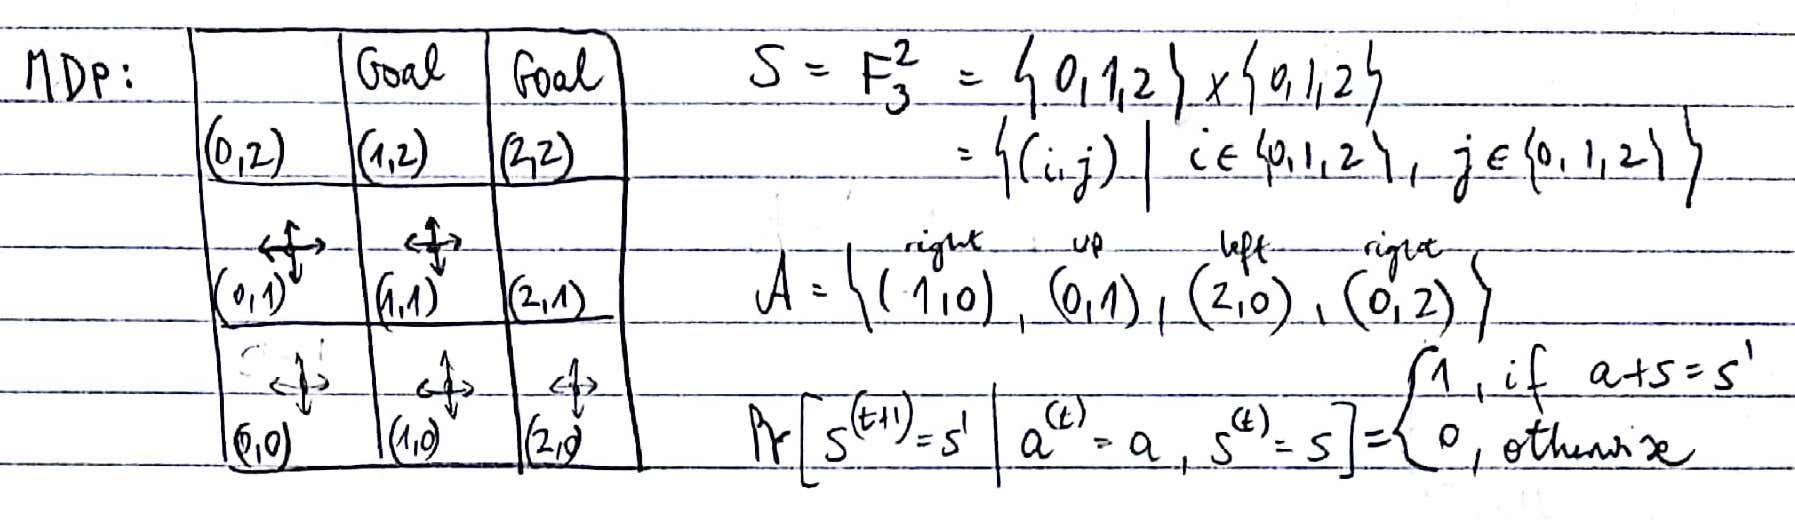 MDP:
Goal Goal
(0,2) (1,2) (2,2)
(0,1) (1,1) (2,1)
(0,0) (1,0) (2,0)
S = F₃² = {0,1,2} x {0,1,2}
= {(i,j) | i ∈ {0,1,2}, j ∈ {0,1,2}}
right up left right
A = {(1,0), (0,1), (2,0), (0,2)}
Pr[s^(t+1) = s' | a^(t) = a, s^(t) = s] = { 1, if a+s = s'
0, otherwise